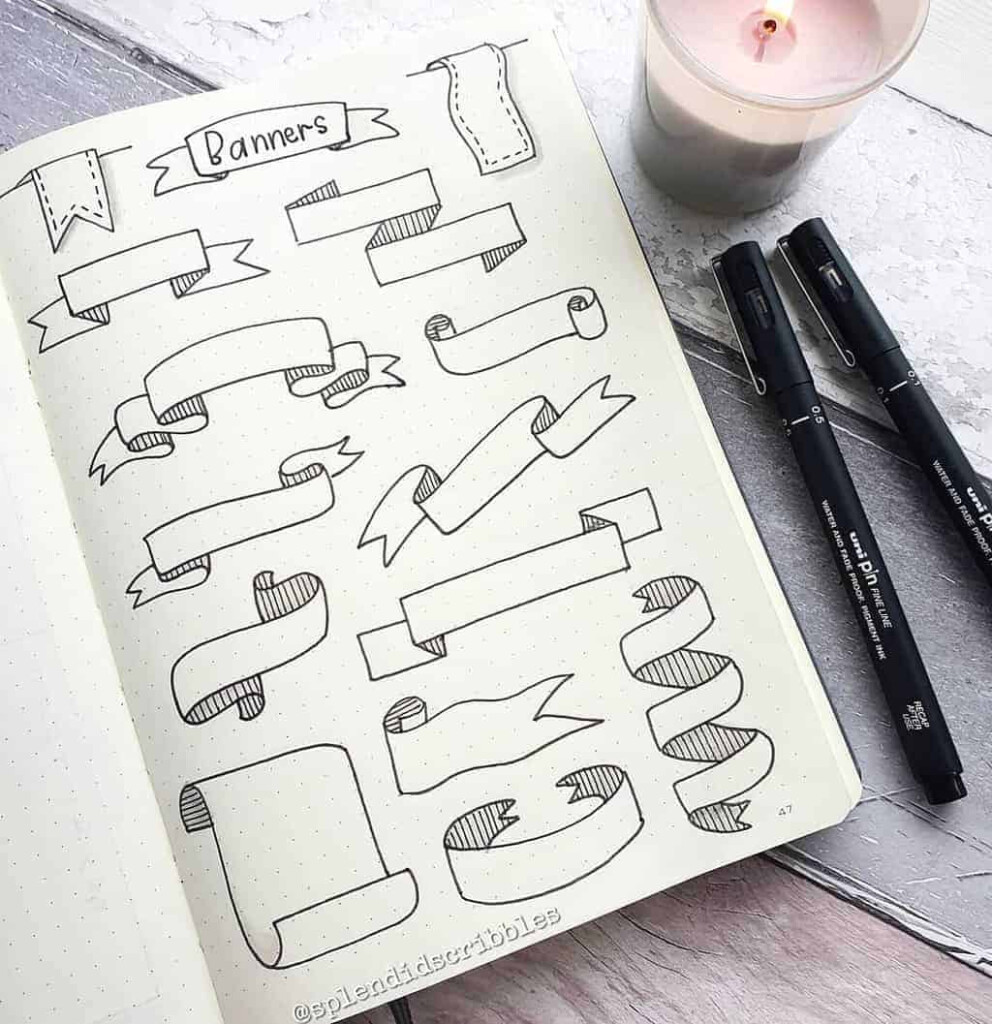 Banners
0.5
0.1
uni pin FINE LINE
WATER AND FADE PROOF, PIGMENT INK
RECAP
AFTER
USE
uni pi
WATER AND FADE PROOF,
47
@splendidscribbles